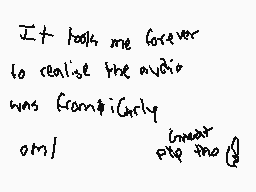 It took me forever
to realise the audio
was from iCarly
oml Great